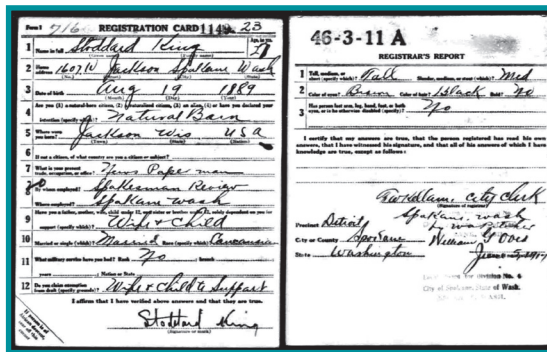 Form 1 716 REGISTRATION CARD 1149. 23
1 Name in full Stoddard King Age, in yrs. 27
2 Home address 1607 N Jackson Spokane Wash
3 Date of birth Aug 19 1889
4 Are you (1) a natural-born citizen, (2) a naturalized citizen, (3) an alien, (4) or have you declared your
intention (specify which)? Natural Born
5 Where were you born? Jackson Wis USA
6 If not a citizen, of what country are you a citizen or subject?
7 What is your present trade, occupation, or office? News Paper man
8 By whom employed? Spokesman Review
Where employed? Spokane Wash
9 Have you a father, mother, wife, child under 12, or a sister or brother under 12, solely dependent on you for
support (specify which)? Wife + Child
10 Married or single (which)? Married Race (specify which)? Caucasian
11 What military service have you had? Rank No branch
years Nation or State
12 Do you claim exemption from draft (specify grounds)? Wife + Child to Support
I affirm that I have verified above answers and that they are true.
Stoddard King
(Signature or mark)
46-3-11 A
REGISTRAR'S REPORT
1 Tall, medium, or short (specify which)? Tall Slender, medium, or stout (which)? Med
2 Color of eyes? Brown Color of hair? Black Bald? No
3 Has person lost arm, leg, hand, foot, or both eyes, or is he otherwise disabled (specify)? No
I certify that my answers are true, that the person registered has read his own
answers, that I have witnessed his signature, and that all of his answers of which I have
knowledge are true, except as follows:
City Clerk
(Signature of registrar)
Spokane, Wash
Precinct Detroit
City or County Spokane William G
State Washington June 5, 1917
for Division No. 6
City of Spokane, State of Wash.